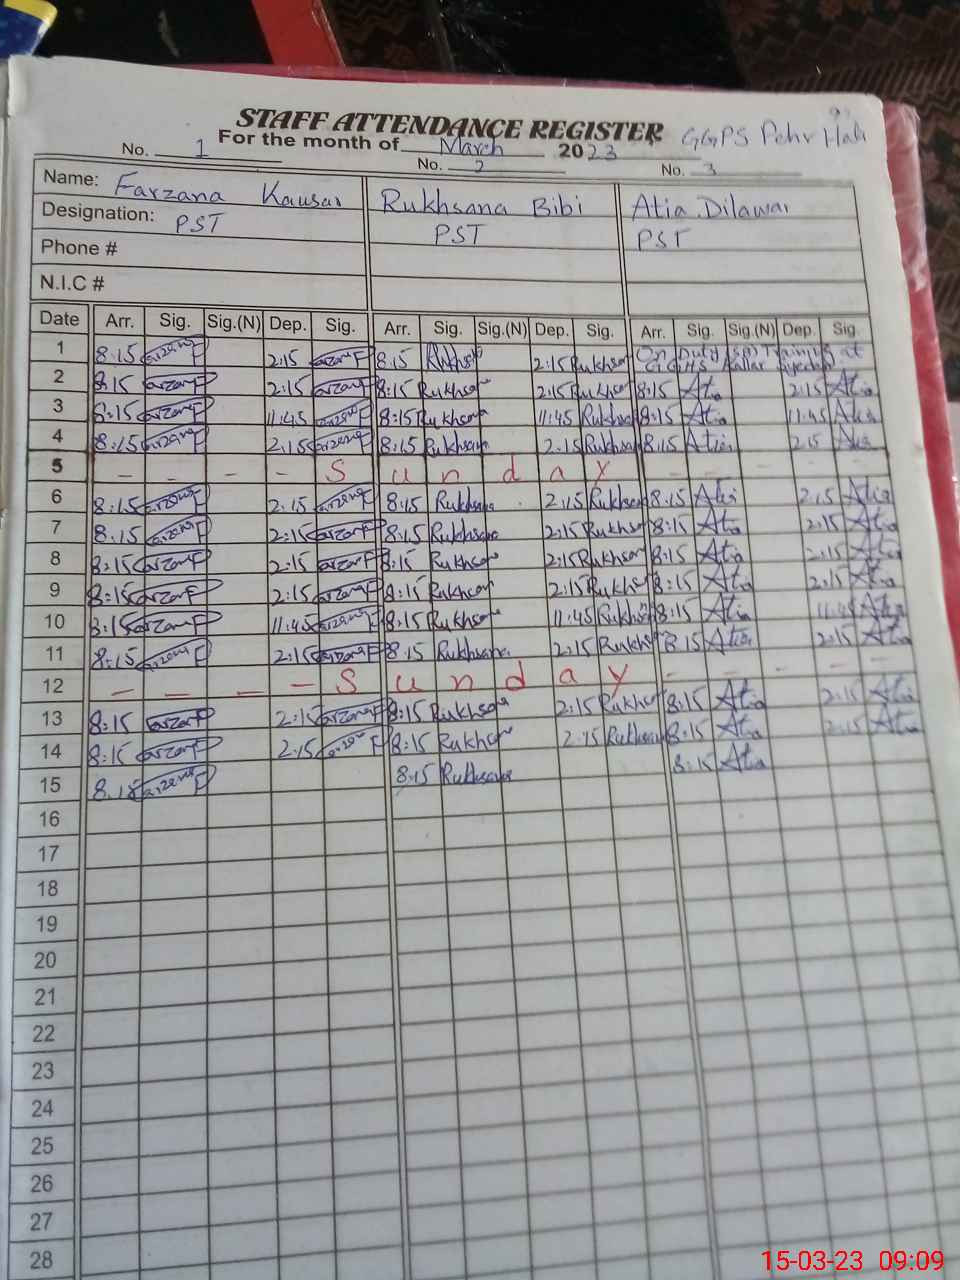 STAFF ATTENDANCE REGISTER
For the month of March 2023 GGPS Pehr Hali
No. 1 No. 2 No. 3
Name: Farzana Kausar Rukhsana Bibi Atia Dilawar
Designation: PST PST PST
Phone #
N.I.C #
Date Arr. Sig. Sig.(N) Dep. Sig. Arr. Sig. Sig.(N) Dep. Sig. Arr. Sig. Sig.(N) Dep. Sig.
1 8:15 FarzanF 2:15 FarzanF 8:15 Rukhsa 2:15 Rukhsan On Duty Training at GGHS Kallar
2 8:15 FarzanF 2:15 FarzanF 8:15 Rukhsana 2:15 Rukhsan 8:15 Atia 2:15 Atia
3 8:15 FarzanF 11:45 FarzanF 8:15 Rukhsana 11:45 Rukhsan 8:15 Atia 11:45 Atia
4 8:15 FarzanF 2:15 FarzanF 8:15 Rukhsana 2:15 Rukhsan 8:15 Atia 2:15 Atia
5 - - - - S u n d a y - - - - -
6 8:15 FarzanF 2:15 FarzanF 8:15 Rukhsana 2:15 Rukhsan 8:15 Atia 2:15 Atia
7 8:15 FarzanF 2:15 FarzanF 8:15 Rukhsana 2:15 Rukhsan 8:15 Atia 2:15 Atia
8 8:15 FarzanF 2:15 FarzanF 8:15 Rukhsana 2:15 Rukhsan 8:15 Atia 2:15 Atia
9 8:15 FarzanF 2:15 FarzanF 8:15 Rukhsana 2:15 Rukhsa 8:15 Atia 2:15 Atia
10 8:15 FarzanF 11:45 FarzanF 8:15 Rukhsana 11:45 Rukhsa 8:15 Atia 11:45 Atia
11 8:15 FarzanF 2:15 FarzanF 8:15 Rukhsana 2:15 Rukhsa 8:15 Atia 2:15 Atia
12 - - - - S u n d a y - - - - -
13 8:15 FarzanF 2:15 FarzanF 8:15 Rukhsana 2:15 Rukhsa 8:15 Atia 2:15 Atia
14 8:15 FarzanF 2:15 FarzanF 8:15 Rukhsana 2:15 Rukhsan 8:15 Atia 2:15 Atia
15 8:15 FarzanF 8:15 Rukhsana 8:15 Atia
16
17
18
19
20
21
22
23
24
25
26
27
28
15-03-23 09:09